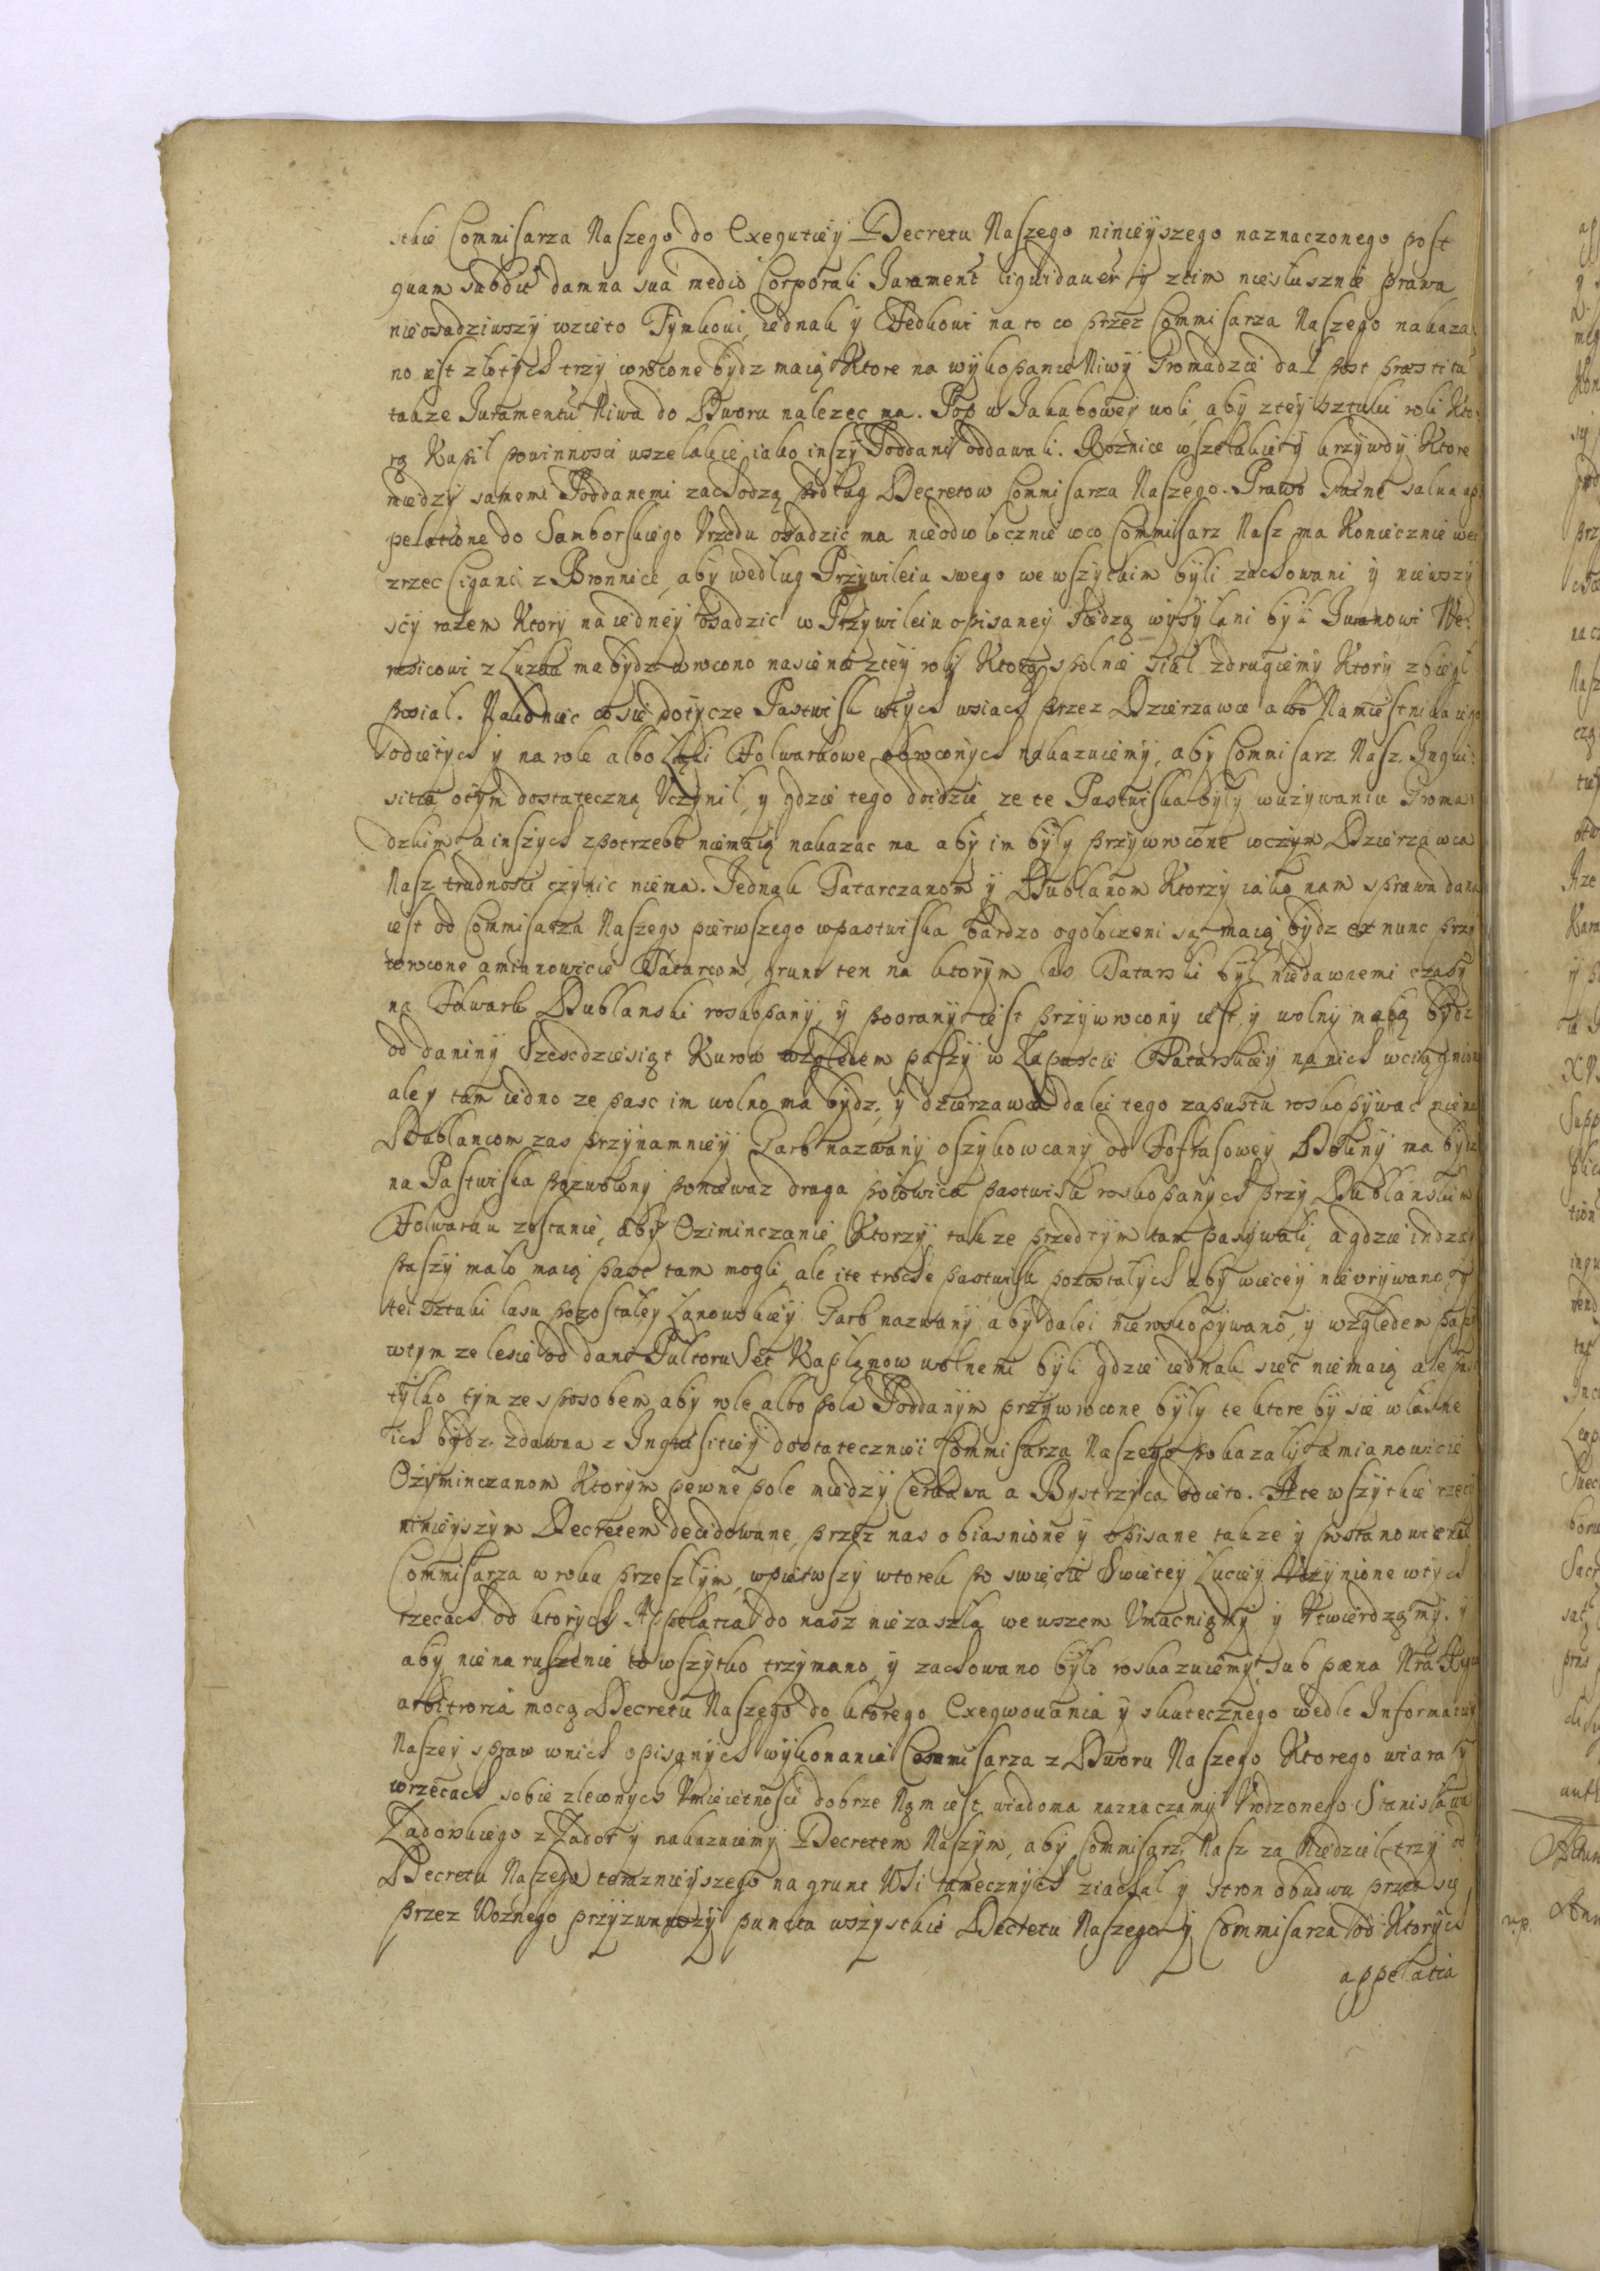 stkie Commisarza Naszego do Exequtiey Decretu Naszego ninieyszego naznaczonego post
quam subditi damna sua medio Corporali Iurament liquidauer y ztim niesłusznie prawa
nieosadziwszy wzieto Tymkowi, iednak y Fedkowi na to co przez Commisarza Naszego nakaza
no iest złotych trzy wrocone bydz maią Ktore na wykopanie Niwy Gromadzie dał post præstitu
takze Iuramentu Niwa do Dworu nalezec ma. Pop w Iakubowey woli, aby ztey sztuki roli Kto
rą Kupił powinnosci wszelakie iako inszy Poddani oddawali. Roznice wszelakie y krzywdy Ktore
miedzy samemi Poddanemi zachodzą podług Decretow Commisarza Naszego. Prawo salua ap
pelatione do Samborskiego Vrzędu osadzic ma nieodwłocznie wco Commisarz Nasz ma Koniecznie wey
zrzec Cigani z Bronnice, aby według Przywileiu swego we wszytkim byli zachowani y niewszy
scy razem Ktory na iedney osadzic w Przywileiu opisaney siedzą wysyłani byli Iwanowi
z Łuzka ma bydz wrocono nasienie ztey roly Ktorą spolnie siał zdrugiemy Ktory zbiegł
posiał. Nakoniec co się dotycze Pastwisk wtych wsiach przez Dzierzawce albo Namiestnika iego
odietych y na role albo Łąki Folwarkowe obroconych nakazuiemy, aby Commisarz Nasz Inqui
sitią otym dostateczną Vczynił, y gdzie tego doidzie ze te Pastwiska były wuzywaniu Groma
dzkim a inszych zpotrzebe niemaią nakazac ma aby im były przywrocone wczym Dzierzawca
Nasz trudnosci czynic niema. Iednak Tatarczanom y Dublanom Ktorzy iako nam sprawa dana
iest od Commisarza Naszego pierwszego wpastwiska bardzo ogołoczeni są maią bydz ex nunc przy
wrocone amianowicie Tatarcom, grunt ten na ktorym las Tatarski był niedawnemi czasy
na Folwark Dublanski roskopany y poorany iest przywrocony iest y wolny maią bydz
od daniny Szescdziesiąt Kurow względem paszy w Zapuscie Tatarskiey na nich wciągnion
ale y tam iedno ze pasc im wolno ma bydz, y dzierzawca dalei tego zapustu roskopywac niema
Dublancom zas przynamniey Garb nazwany oszykowcany od Fofrasowey Doliny ma bydz
na Pastwiska pozwolony poniewaz druga połowica pastwisk roskopanych przy Dublanskim
Folwarku zostanie, aby Oziminczanie Ktorzy takze przedtym tam pasywali, a gdzie indzey
paszy mało maią pasc tam mogli, ale ite troche pastwisk pozostałych aby wiecey nievrywano, y
tei sztuki lasu pozostałey Łanowskiey Garb nazwany, aby dalei nieroskopywano, y względem paszy
wtym ze lesie od dani Pułtoru Set Kapłąnow wolnemi byli gdzie iednak siec niemaią ale pas
tylko tym ze sposobem, aby role albo pola Poddanym przywrocone były te ktore by sie własne
ich bydz zdawna z Inquisitiey dostateczniei Commisarza Naszego pokazały amianowicie
Ozyminczanom Ktorym pewne pole miedzy Cerkawa a Bystrzyca odieto. A te wszytkie rzeci
ninieyszym Decretem decidowane, przez nas obiasnione y opisane takze y postanowienie
Commisarza w roku przeszłym, wpierwszy wtorek po swięcie Swietey Luciey Vczynione wtych
rzecach od ktorych Appelatia do nasz niezaszła we wszem Vmacniąmy y Vtwierdzamy, y
aby nienaruszenie to wszytko trzymano, y zachowano było roskazuiemy sub pæna Nra
arbitraria mocą Decretu Naszego do ktorego Exeqwowania y skutecznego wedle Informatiey
Naszey spraw wnich opisanych wykonania Commisarza z Dworu Naszego Ktorego wiara y
wrzecach sobie zleconych Vmieietnosci dobrze Nąm iest wiadoma naznaczamy Vrodzonego Stanisława
Zadorskiego z Zador y nakazuiemy Decretem Naszym, aby Commisarz Nasz za Niedziel trzy od
Decretu Naszego teraznieyszego na grunt Wsi tamecznych ziachał y stron obudwu przed się
przez Woznego przyzwawszy puncta wszystkie Decretu Naszego y Commisarza od Ktorych
appelatia